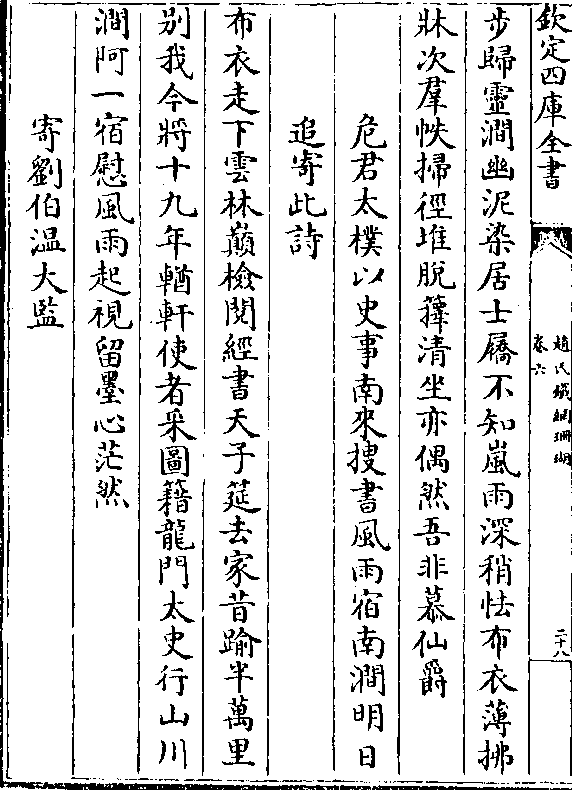 欽定四庫全書
趙氏鐵網珊瑚
卷六
二十八
步歸靈澗幽泥染居士屩不知嵐雨深稍怯布衣薄拂
牀次羣帙掃徑堆脫籜清坐亦偶然吾非慕仙爵
危君太樸以史事南來搜書風雨宿南澗明日
追寄此詩
布衣走下雲林巔檢閱經書天子筵去家昔踰半萬里
别我今將十九年輶軒使者采圖籍龍門太史行山川
澗阿一宿慰風雨起視留墨心茫然
寄劉伯温大監